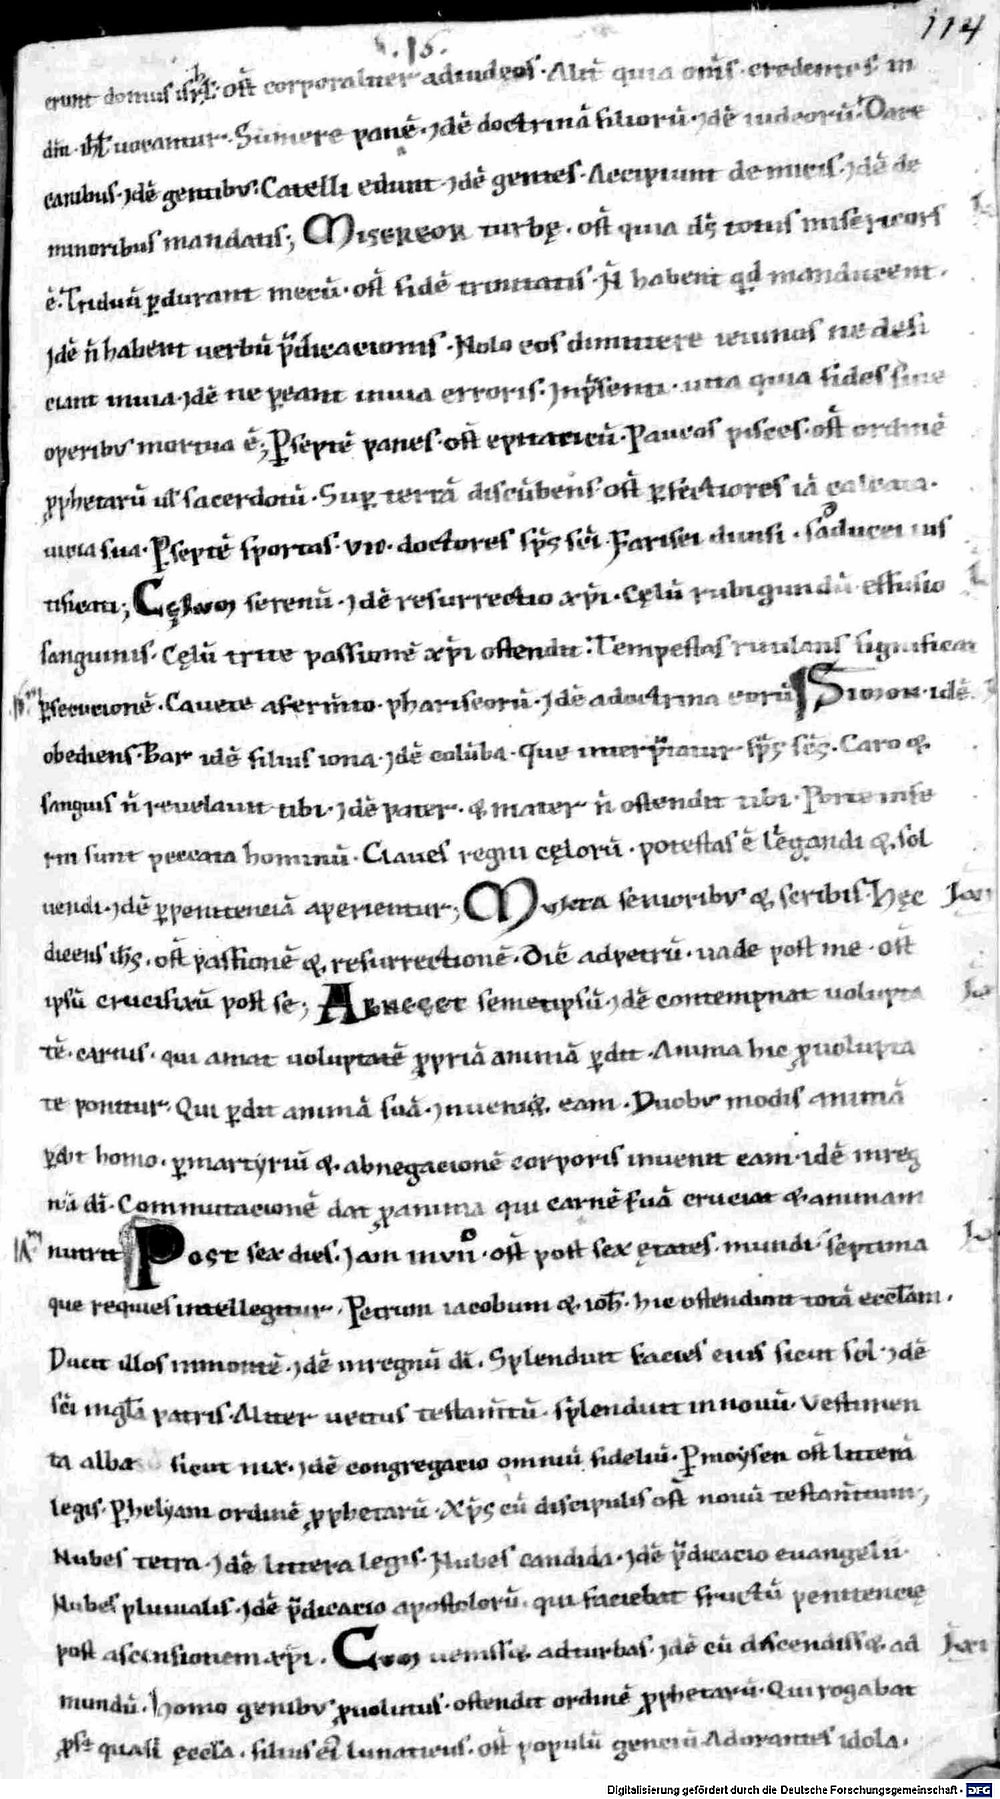 114
.15.
erunt domus isrl̄. ost̄ corporaliter ad iudęos. Alit̄ quia om̄s credentes in
dm̄ ihl̄ uocamur. Sumere panē. idē doctrinā filiorū. idē iudeorū. Dare
canibus. idē gentibꝰ. Catelli edunt. idē gentes. Accipiunt de micis. idē de
minoribus mandatis; Misereor turbę. ost̄ quia dš totus misericors
ē. Triduū ꝑdurant mecū. ost̄ fidē trinitatis. N̄ habent qd̄ manducent.
Idē n̄ habent uerbū p̄dicacionis. Nolo eos dimittere ieiunos ne defi
ciant in uia. idē ne ꝑeant in uia erroris. In p̄senti uita quia fides sine
operibꝰ mortua ē; Ꝑ septē panes. ost̄ eptaticū. Paucos pisces. ost̄ ordinē
ꝓphetarū uł sacerdotū. Suꝑ terrā discūbens. ost̄ ꝑfectiores iā calcata
uicia sua. Ꝑ septē sportas. vii. doctores sp̄s sc̄i. Farisei diuisi. saducei ius
tificati; Cęlum serenū. idē resurrectio xp̄i. Cęlū rubigundū effusio
sanguinis. Cęlū triste passionē xp̄i ostendit. Tempestas rutilans significat
ꝑsecucionē. Cauete a fermto phariseorū. Idē a doctrina eorū Simon. idē
obediens. Bar idē filius iona. idē colūba. Que interp̄tatur sp̄s sc̄s. Caro &
sanguis n̄ reuelauit tibi. idē pater. & mater n̄ ostendit tibi. Porte infe
rni sunt peccata hominū. Claues regni cęlorū. potestas ē legandi & sol
uendi. idē ꝑ penitenciā aperientur; Multa senioribꝰ & scribis. Hęc
dicens ihs̄. ost̄ passionē & resurrectionē. Diē ad petrū. uade post me. ost̄
ipsū crucifixū post se; Abneget semetipsū. idē contempnat uolupta
tē carnis. qui amat uoluptatē ꝓpriā animā ꝑdit. Anima hic ꝓ uolupta
te ponitur. Qui ꝑdit animā suā. inueni&. eam. Duobꝰ modis animā
ꝑdit homo. ꝑ martyriū & abnegacionē corporis inuenit eam. idē in reg
nū dī. Commutacionē dat ꝓ anima qui carnē suā cruciat & animam
nutrit Post sex dies. Iam in vn̄o. ost̄ post sex ętates mundi septima
que requies intellegitur. Petrum iacobum & ioh̄. hic ostendunt totā eccl̄am.
Ducit illos in montē. idē in regnū dī. Splenduit facies eius sicut sol. idē
sc̄i in gl̄a patris. Aliter uetus testam̄tū. splenduit in nouū. Vestimen
ta alba sicut nix. idē congregacio omniū fideliū. Ꝑ moysen ost̄ litterā
legis. Ꝑ helyam ordinē ꝓphetarū. Xp̄s cū discipulis ost̄ nouū testam̄tum;
Nubes tetra. idē littera legis. Nubes candida. idē p̄dicacio euangelii.
Nubes pluuialis. idē p̄dicacio apostolorū. qui faciebat fructū penitencię
post ascensionem xp̄i. Cum uenissę ad turbas. idē cū discendiss& ad
mundū. homo genibꝰ ꝓuolutus. ostendit ordinē ꝓphetarū. Qui rogabat
quasi ęccl̄a. filius ei lunaticus. ost̄ populū genciū Adorantes idola.
Digitalisierung gefördert durch die Deutsche Forschungsgemeinschaft - DFG